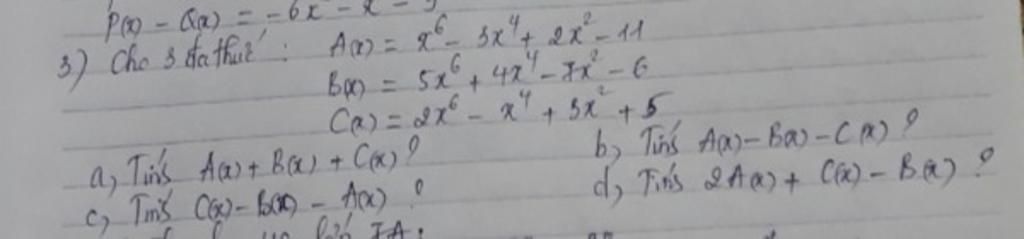 P(x) - Q(x) = -6x - x -
3) Cho 3 đa thức : A(x) = x⁶ - 3x⁴ + 2x² - 11
B(x) = 5x⁶ + 4x⁴ - 7x² - 6
C(x) = 2x⁶ - x⁴ + 3x² + 5
a, Tính A(x) + B(x) + C(x) ?
b, Tính A(x) - B(x) - C(x) ?
c, Tính C(x) - B(x) - A(x) ?
d, Tính 2A(x) + C(x) - B(x) ?